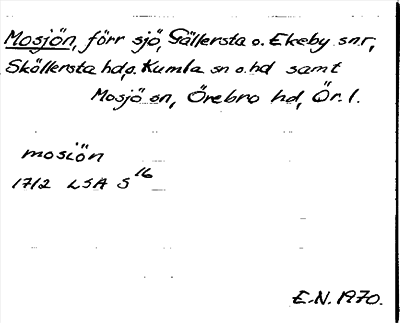 Mosjön, förr sjö, Gällersta o. Ekeby snr,
Sköllersta hd, o. Kumla sn o. hd samt
Mosjö sn, Örebro hd, Ör. l.
mosiön
1712 LSA S 16
E.N. 1970.